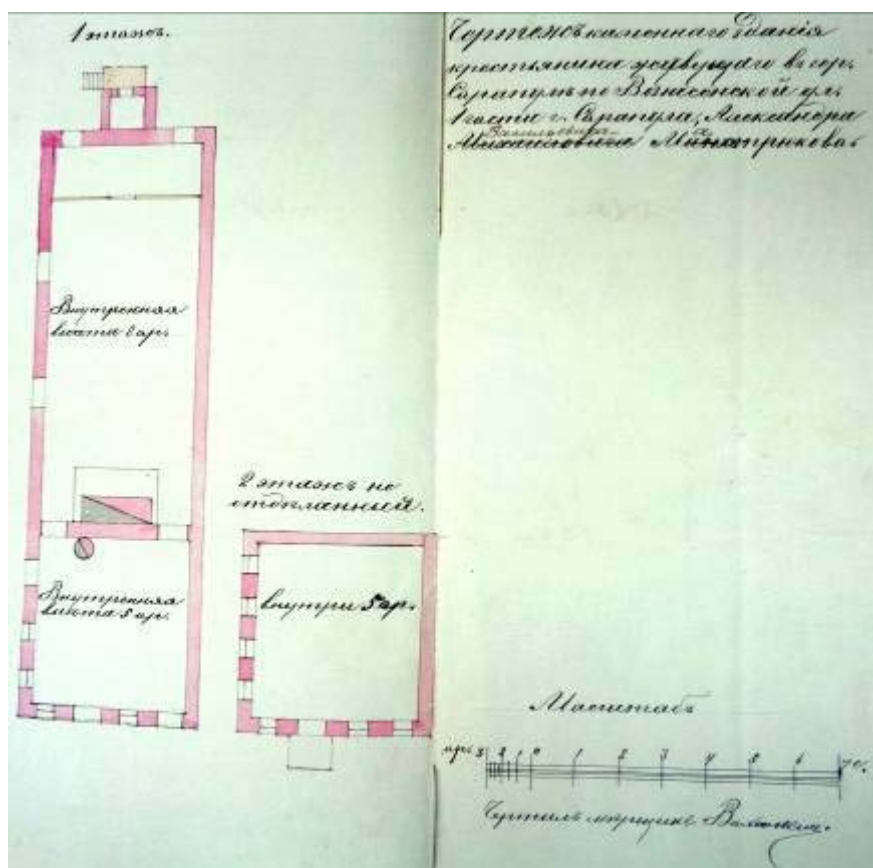 1 этажъ.
Чертежъ каменнаго зданія
крестьянина въ гор.
Сарапулѣ по Вознесенской ул.
1 части г. Сарапула, Александра
Васильевича
Михайловича
Внутренняя
высота 6 ар.
2 этажъ не
отопланный.
Внутренняя
высота 5 ар.
внутри 5 ар.
Масштабъ
арш 3 2 1 0 1 2 3 4 5 6 7 с.
Чертилъ